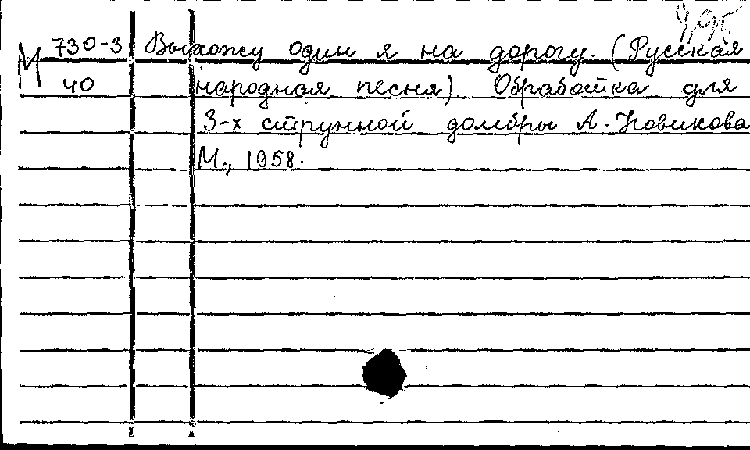 М 730-3 Выхожу один я на дорогу. (Русская
40 народная песня). Обработка для
3-х струнной домбры А. Новикова
М., 1958.